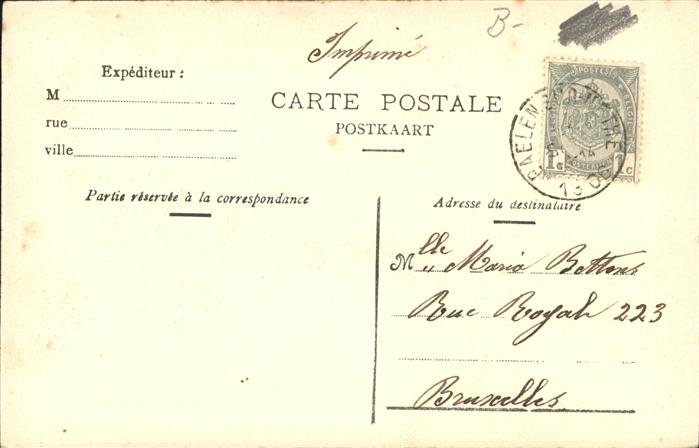 B-
Imprimé
Expéditeur :
M
rue
ville
CARTE POSTALE
POSTKAART
POSTES
1c 1c
BAELEN
Partie réservée à la correspondance
Adresse du destinataire
Mlle Maria Bettens
Rue Royale 223
Bruxelles